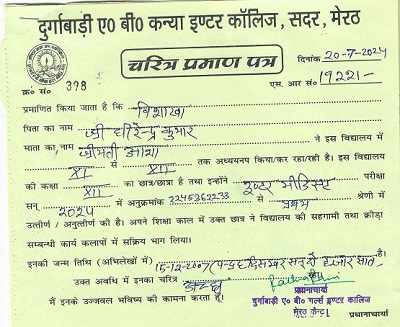 दुर्गाबाड़ी ए० बी० कन्या इण्टर कॉलिज, सदर, मेरठ
दिनांक 20-7-2024
चरित्र प्रमाण पत्र
क्र० सं० 398
एस. आर सं० 19221/-
प्रमाणित किया जाता है कि विशाखा
पिता का नाम श्री वीरेन्द्र कुमार
माता का नाम श्रीमती आशा ने इस विद्यालय में
XI से XII तक अध्ययनप किया/कर रहा/रही है। इस विद्यालय
की कक्षा XII का छात्र/छात्रा है तथा इन्होंने इण्टर मीडिएट परीक्षा
सन् 2024 में अनुक्रमांक 2245262233 से प्रथम श्रेणी में
उत्तीर्ण / अनुत्तीर्ण की है। अपने शिक्षा काल में उक्त छात्र ने विद्यालय की सहगामी तथा क्रीड़ा
सम्बन्धी कार्य कलापों में सक्रिय भाग लिया।
इनकी जन्म तिथि (अभिलेखों में) 15-12-2007 (पन्द्रह दिसम्बर सन् दो हजार सात) है।
उक्त अवधि में इनका चरित्र अच्छा रहा।
मैं इनके उज्जवल भविष्य की कामना करता हूँ।
प्रधानाचार्या
दुर्गाबाड़ी ए० बी० गर्ल्स इण्टर कालिज
मेरठ कैन्ट।
प्रधानाचार्या